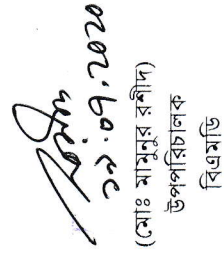 ২২.০৭.২০২০
(মোঃ মামুনুর রশীদ)
উপপরিচালক
বিএমডি